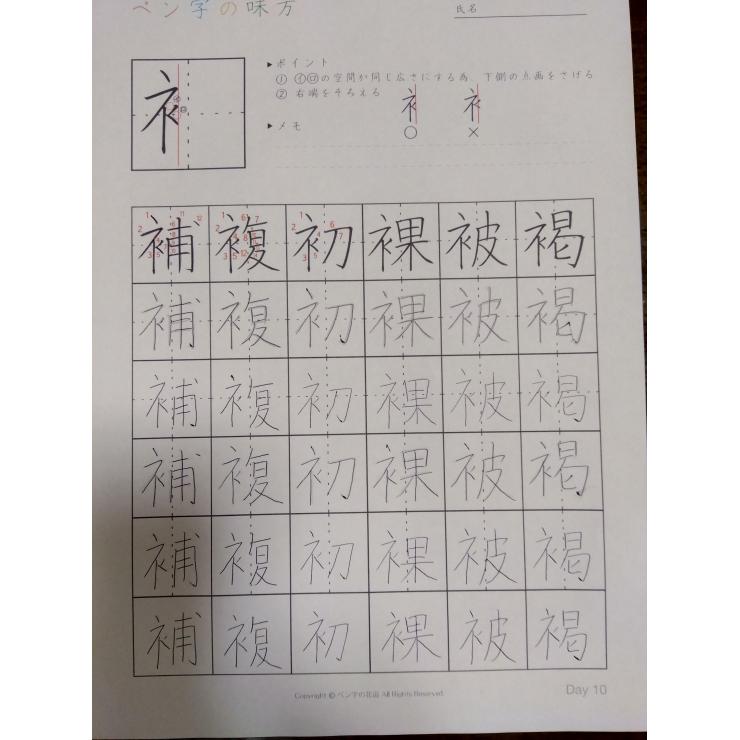 ペン字の味方
氏名
衤
▶ポイント
① ㋑㋺の空間が同じ広さにする為、下側の点画をさげる
② 右端をそろえる
衤 衤
○ ×
▶メモ
補 複 初 裸 被 褐
補 複 初 裸 被 褐
補 複 初 裸 被 褐
補 複 初 裸 被 褐
補 複 初 裸 被 褐
補 複 初 裸 被 褐
Copyright © ペン字の花山 All Rights Reserved.
Day 10